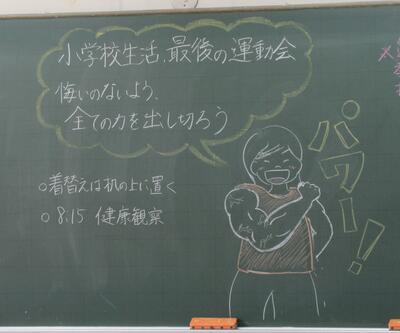 小学校生活、最後の運動会
悔いのないよう、
全ての力を出し切ろう
○着替えは机の上に置く
○8:15 健康観察
パワー!